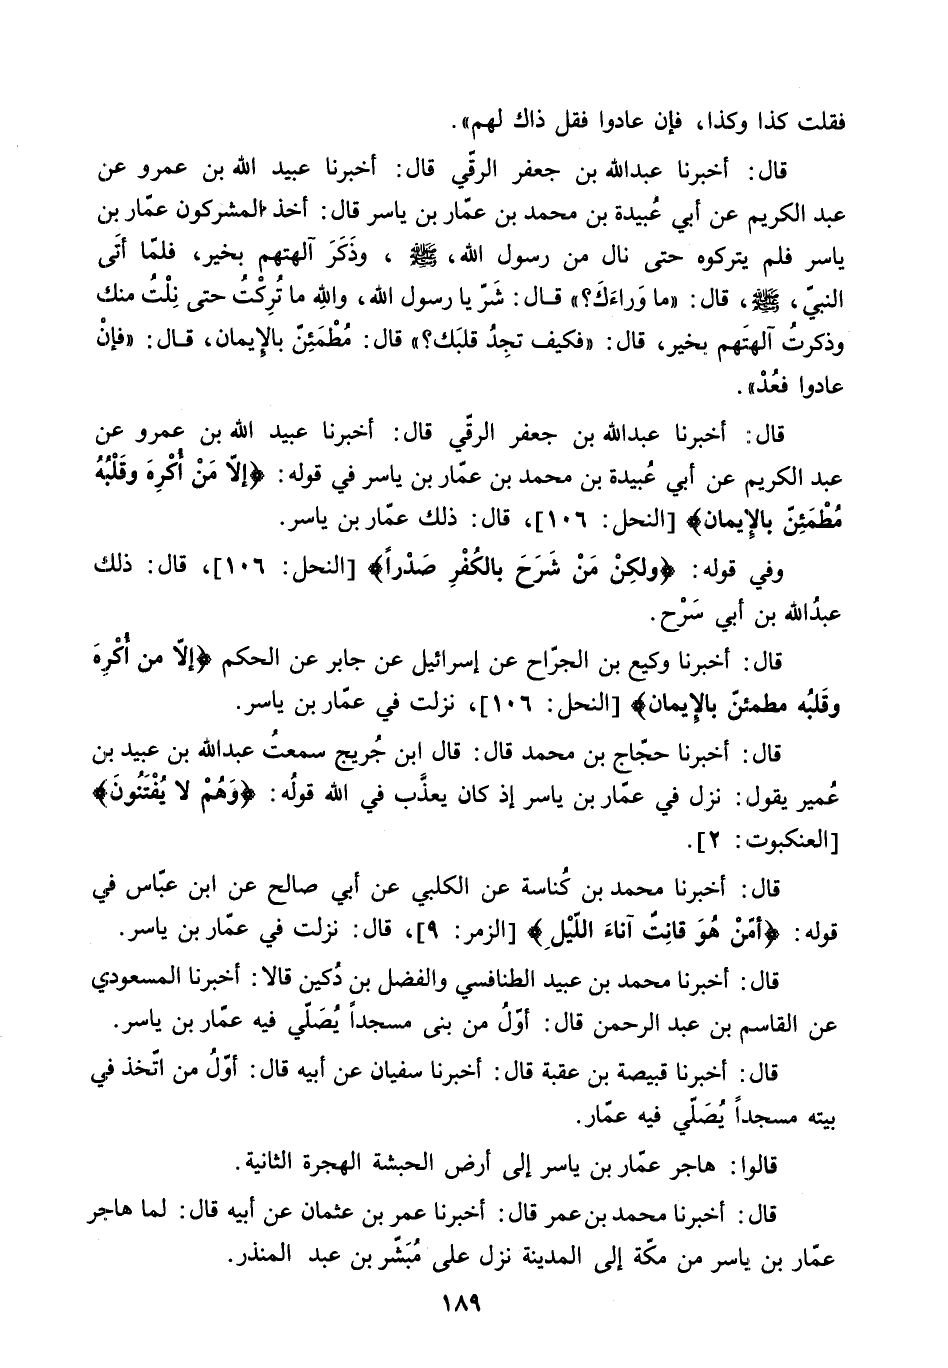 فقلت كذا وكذا، فإن عادوا فقل ذاك لهم».
قال: أخبرنا عبدالله بن جعفر الرقّي قال: أخبرنا عبيد الله بن عمرو عن
عبد الكريم عن أبي عُبيدة بن محمد بن عمّار بن ياسر قال: أخذ المشركون عمّار بن
ياسر فلم يتركوه حتى نال من رسول الله، ﷺ ، وذَكَرَ آلهتهم بخير، فلمّا أتَى
النبيّ، ﷺ، قال: «ما وَراءَكَ؟» قال: شَرّ يا رسول الله، واللهِ ما تُرِكْتُ حتى نِلْتُ منك
وذكرتُ آلهتَهم بخير، قال: «فكيف تجِدُ قلبَك؟» قال: مُطْمَئِنّ بالإيمان، قال: «فإنْ
عادوا فعُدْ».
قال: أخبرنا عبدالله بن جعفر الرقّي قال: أخبرنا عبيد الله بن عمرو عن
عبد الكريم عن أبي عُبيدة بن محمد بن عمّار بن ياسر في قوله: ﴿إلّا مَنْ أُكْرِهَ وقَلْبُهُ
مُطْمَئِنّ بالإيمان﴾ [النحل: ١٠٦]، قال: ذلك عمّار بن ياسر.
وفي قوله: ﴿ولكِنْ مَنْ شَرَحَ بالكُفْرِ صَدْراً﴾ [النحل: ١٠٦]، قال: ذلك
عبدُالله بن أبي سَرْح.
قال: أخبرنا وكيع بن الجرّاح عن إسرائيل عن جابر عن الحكم ﴿إلّا من أُكْرِهَ
وقَلبُه مطمئنّ بالإيمان﴾ [النحل: ١٠٦]، نزلت في عمّار بن ياسر.
قال: أخبرنا حجّاج بن محمد قال: قال ابن جُريج سمعتُ عبدالله بن عبيد بن
عُمير يقول: نزل في عمّار بن ياسر إذ كان يعذَّب في الله قولُه: ﴿وَهُمْ لا يُفْتَنُونَ﴾
[العنكبوت: ٢].
قال: أخبرنا محمد بن كُناسة عن الكلبي عن أبي صالح عن ابن عبّاس في
قوله: ﴿أمّنْ هُوَ قانِتٌ آناءَ اللّيْلِ﴾ [الزمر: ٩]، قال: نزلت في عمّار بن ياسر.
قال: أخبرنا محمد بن عبيد الطنافسي والفضل بن دُكين قالا: أخبرنا المسعودي
عن القاسم بن عبد الرحمن قال: أوّلُ من بنى مسجداً يُصَلّي فيه عمّار بن ياسر.
قال: أخبرنا قبيصة بن عقبة قال: أخبرنا سفيان عن أبيه قال: أوّلُ من اتّخذ في
بيته مسجداً يُصَلّي فيه عمّار.
قالوا: هاجر عمّار بن ياسر إلى أرض الحبشة الهجرة الثانية.
قال: أخبرنا محمد بن عمر قال: أخبرنا عمر بن عثمان عن أبيه قال: لما هاجر
عمّار بن ياسر من مكّة إلى المدينة نزل على مُبَشّر بن عبد المنذر.
١٨٩